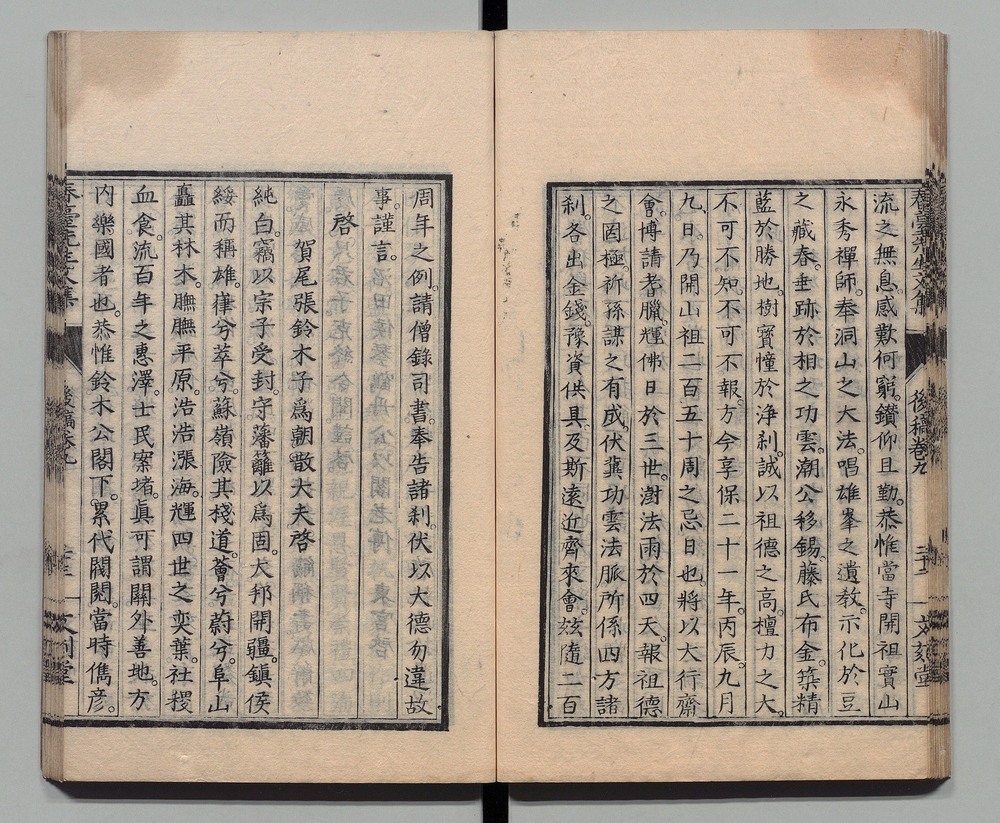 流之無息。感歎何窮。鑽仰且勤。恭惟當寺開祖實山
永秀禪師。奉洞山之大法。唱雄峯之遺教。示化於豆
之藏春。垂跡於相之功雲。潮公移錫。藤氏布金。築精
藍於勝地。樹寶幢於浄刹。誠以祖德之高。檀力之大。
不可不知。不可不報。方今享保二十一年。丙辰。九月
九日。乃開山祖二百五十周之忌日也。將以大行齋
會。博請耆臘。輝佛日於三世。澍法雨於四天。報祖德
之罔極。祈孫謀之有成。伏冀功雲法脈所係四方諸
刹。各出金錢。豫資供具。及斯遠近齊來會。玆隨二百
後稿卷九
周年之例。請僧錄司書。奉告諸刹。伏以大德勿違故
事。謹言。
啓
賀尾張鈴木子爲朝散大夫啓
純白。竊以宗子受封。守藩籬以爲固。大邦開疆。鎭侯
綏而稱雄。嵂兮萃兮。蘇嶺險其棧道。薈兮蔚兮。阜山
矗其林木。膴膴平原。浩浩漲海。輝四世之奕葉。社稷
血食。流百年之惠澤。士民寀堵。眞可謂關外善地。方
内樂國者也。恭惟鈴木公閣下。累代閥閱。當時儁彦。
春臺先生文集
後稿卷九